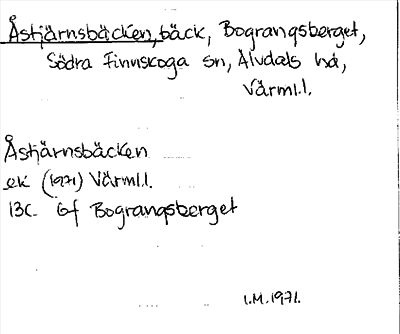 Åstjärnsbäcken, bäck, Bograngsberget,
Södra Finnskoga sn, Älvdals hd,
Värml.l.
Åstjärnsbäcken
ek (1971) Värml.l.
13C Gf Bograngsberget
I.M.1971.